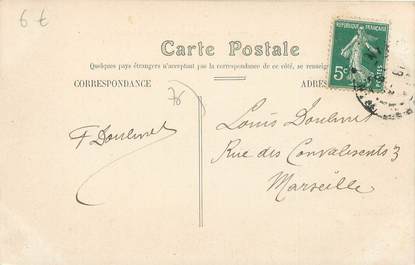 6 €
Carte Postale
Quelques pays étrangers n'acceptant pas la correspondance de ce côté, se renseigner
CORRESPONDANCE
ADRES
REPUBLIQUE FRANÇAISE
5c
POSTES
76
Louis
Rue des Convalescents 3
Marseille